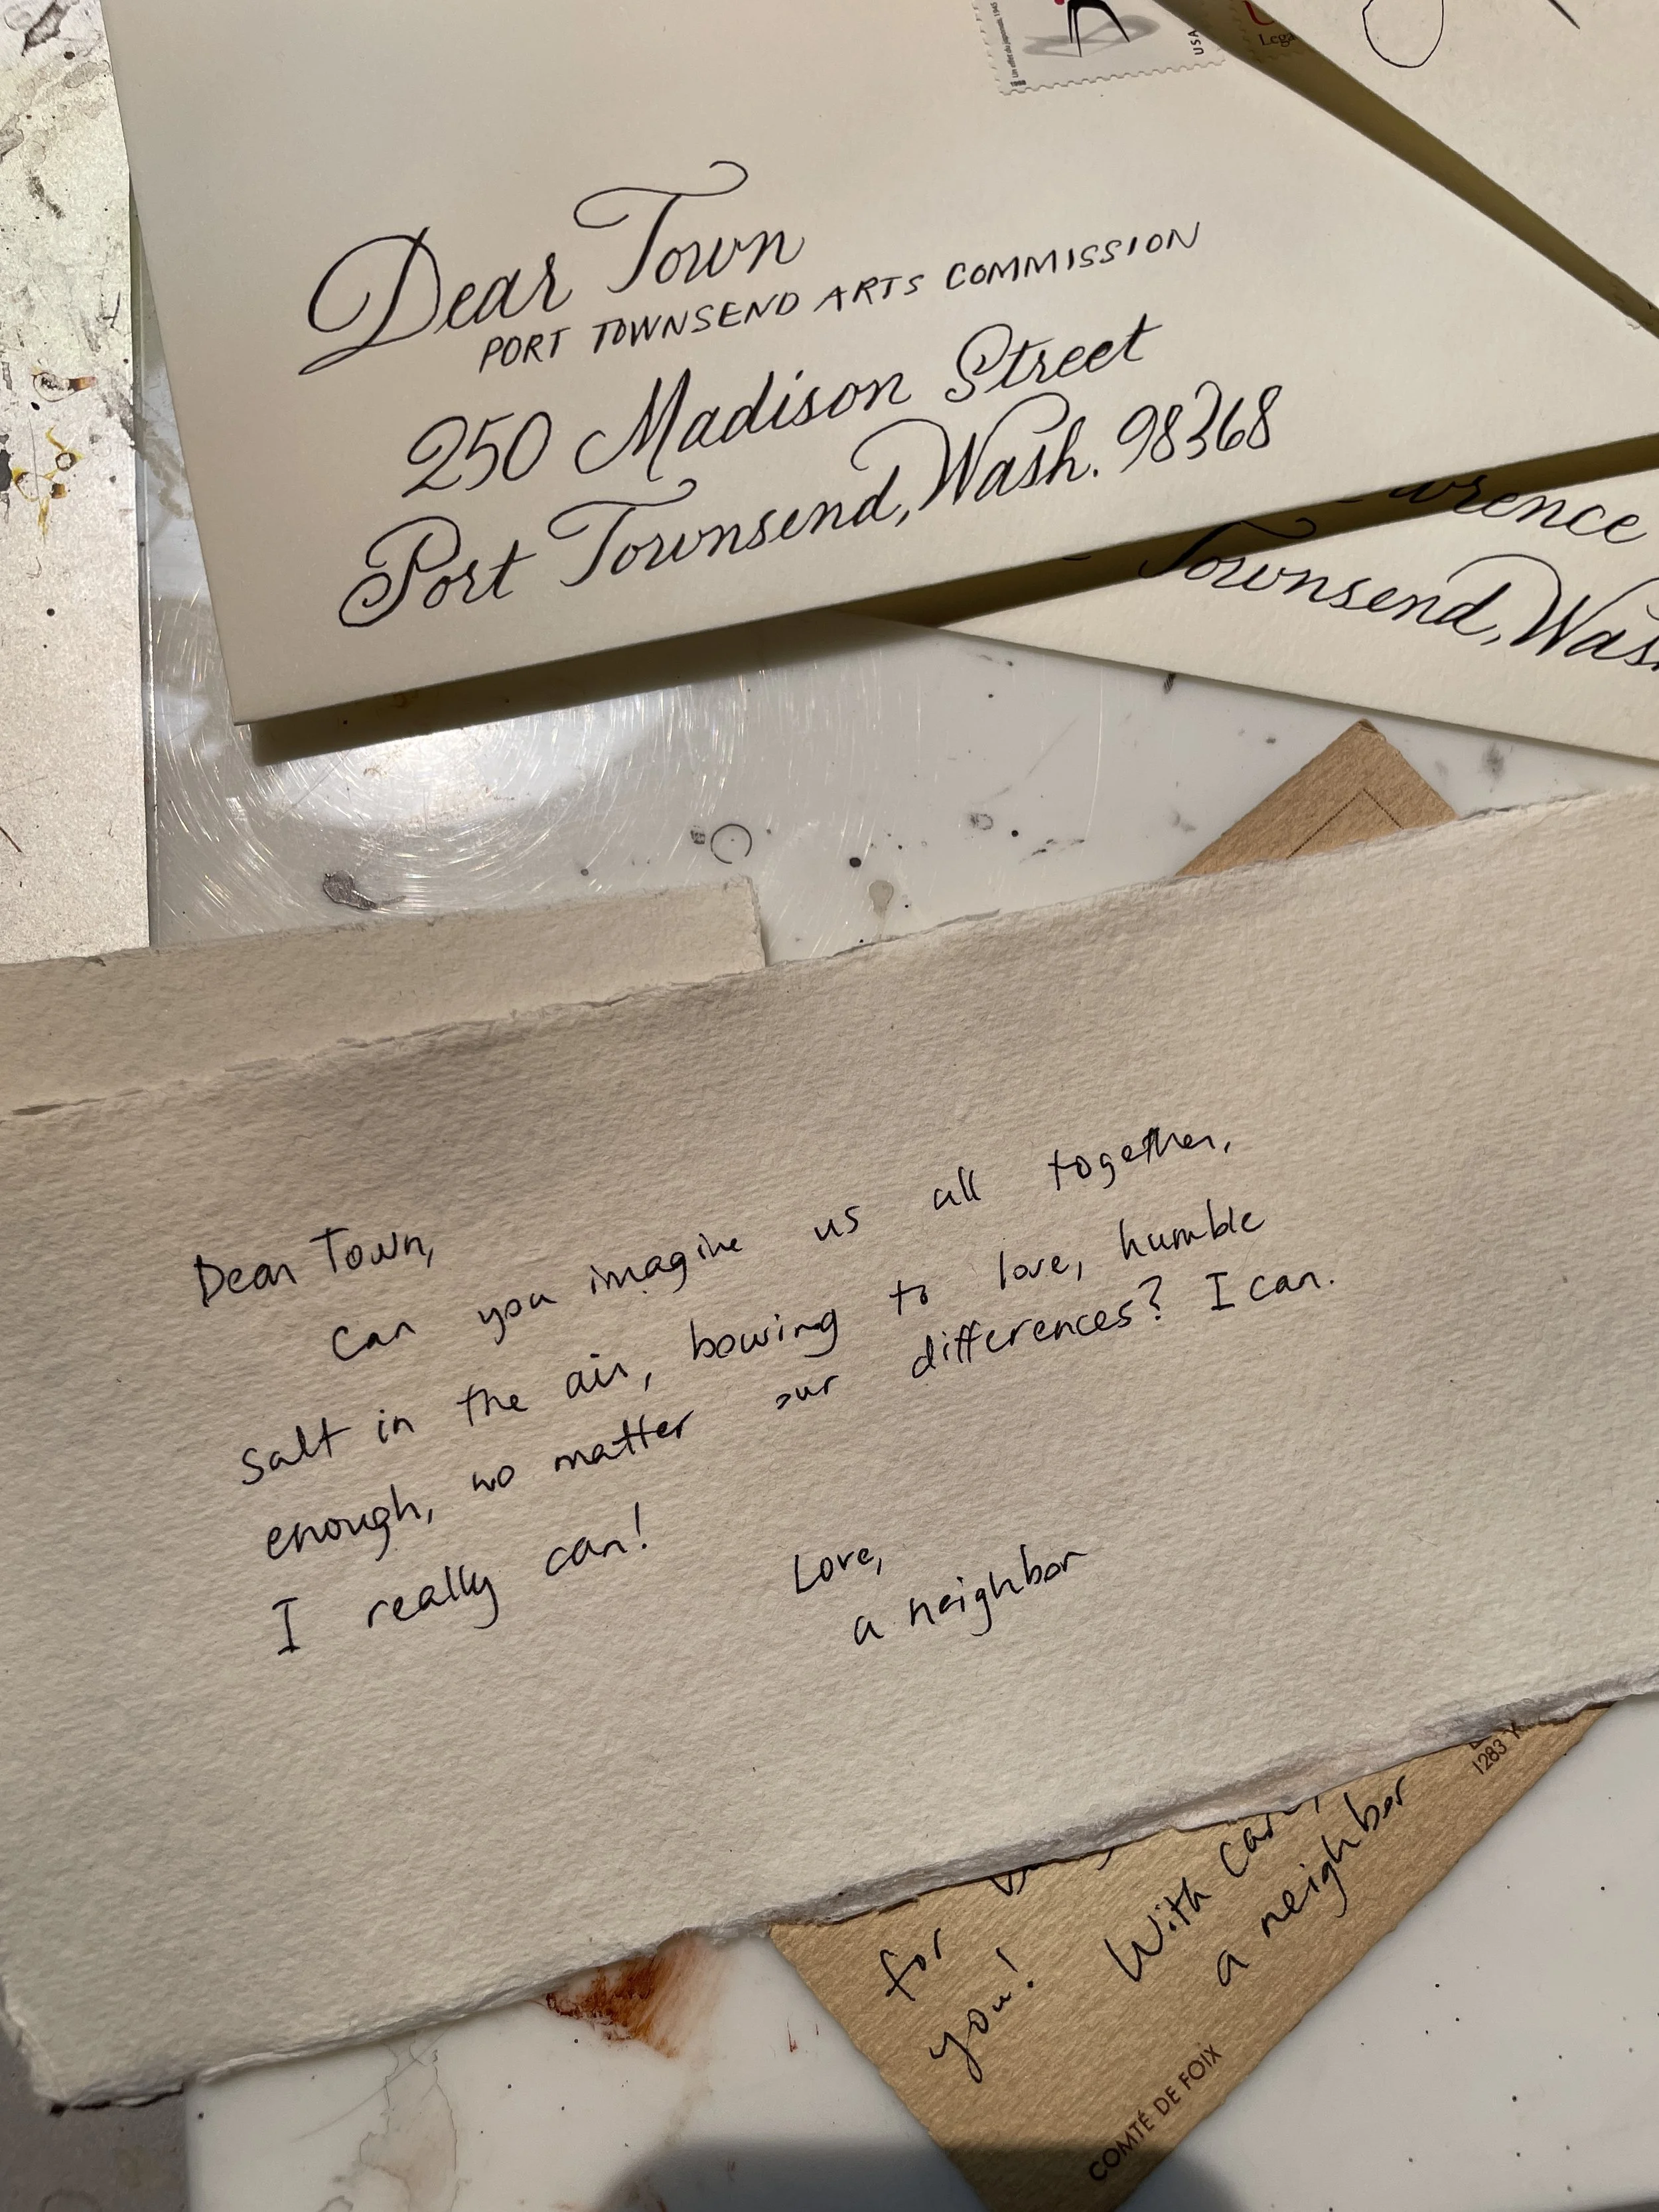 USA
Lega
Dear Town
PORT TOWNSEND ARTS COMMISSION
250 Madison Street
Port Townsend, Wash. 98368
Townsend, Was
Dear Town,
Can you imagine us all together,
salt in the air, bowing to love, humble
enough, no matter our differences? I can.
I really can!
Love,
a neighbor
1283 X
for
you! With care,
a neighbor
COMTÉ DE FOIX